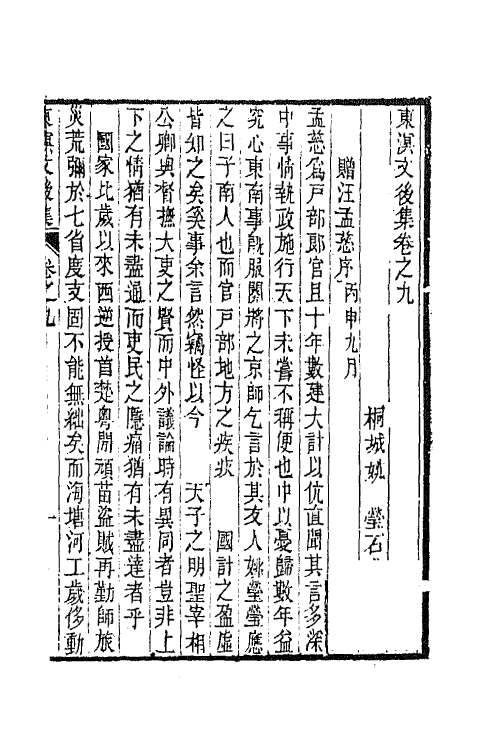 東溟文後集卷之九
桐城姚　瑩石
贈汪孟慈序丙申九月
孟慈爲戸部郎官且十年數建大計以伉直聞其言多深
中事情執政施行天下未嘗不稱便也中以憂歸數年益
究心東南事旣服闋將之京師乞言於其友人姚瑩瑩應
之曰子南人也而官戸部地方之疾疚　　國計之盈虛
皆知之矣奚事余言然竊怪以今　　天子之明聖宰相
公卿與督撫大吏之賢而中外議論時有異同者豈非上
下之情猶有未盡通而吏民之隱痛猶有未盡達者乎
國家比歲以來西逆授首楚粵間頑苗盜賊再勤師旅
災荒彌於七省度支固不能無絀矣而海塘河工歲侈動
東溟文後集　卷之九　一